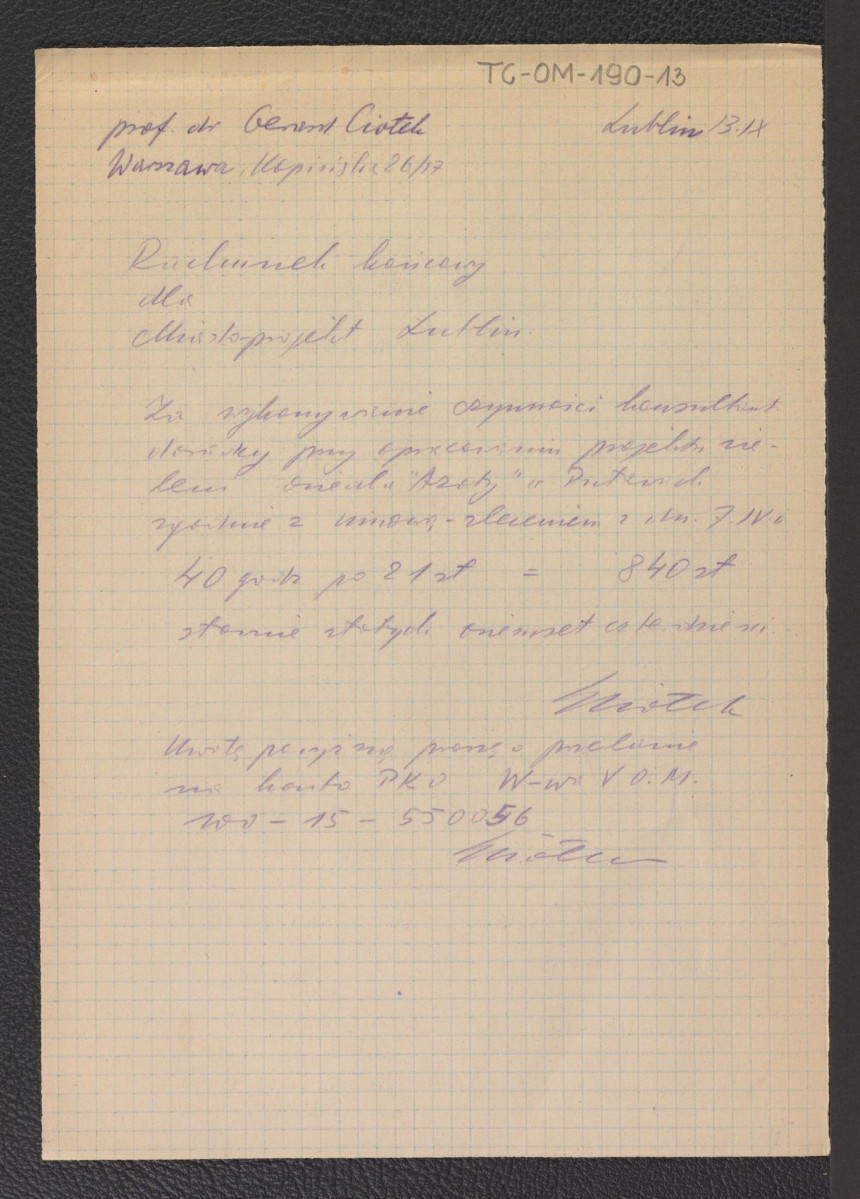 TC-OM-190-13
prof. dr Gerard Ciołek Lublin 13.IX
Warszawa, Kopińska 26/17
Rachunek końcowy
dla
Miastoprojekt Lublin.
Za wykonywanie czynności konsultant
doradcy przy opracowaniu projektu zie-
leni osiedla "Azoty" w Puławach
zgodnie z umową-zleceniem z dn. 7.IV
40 godz po 21 zł = 840 zł
słownie złotych osiemset czterdzieści
GCiołek
Kwotę powyższą proszę o przelanie
na konto PKO W-wa V O.M.
100-15-550056
GCiołek